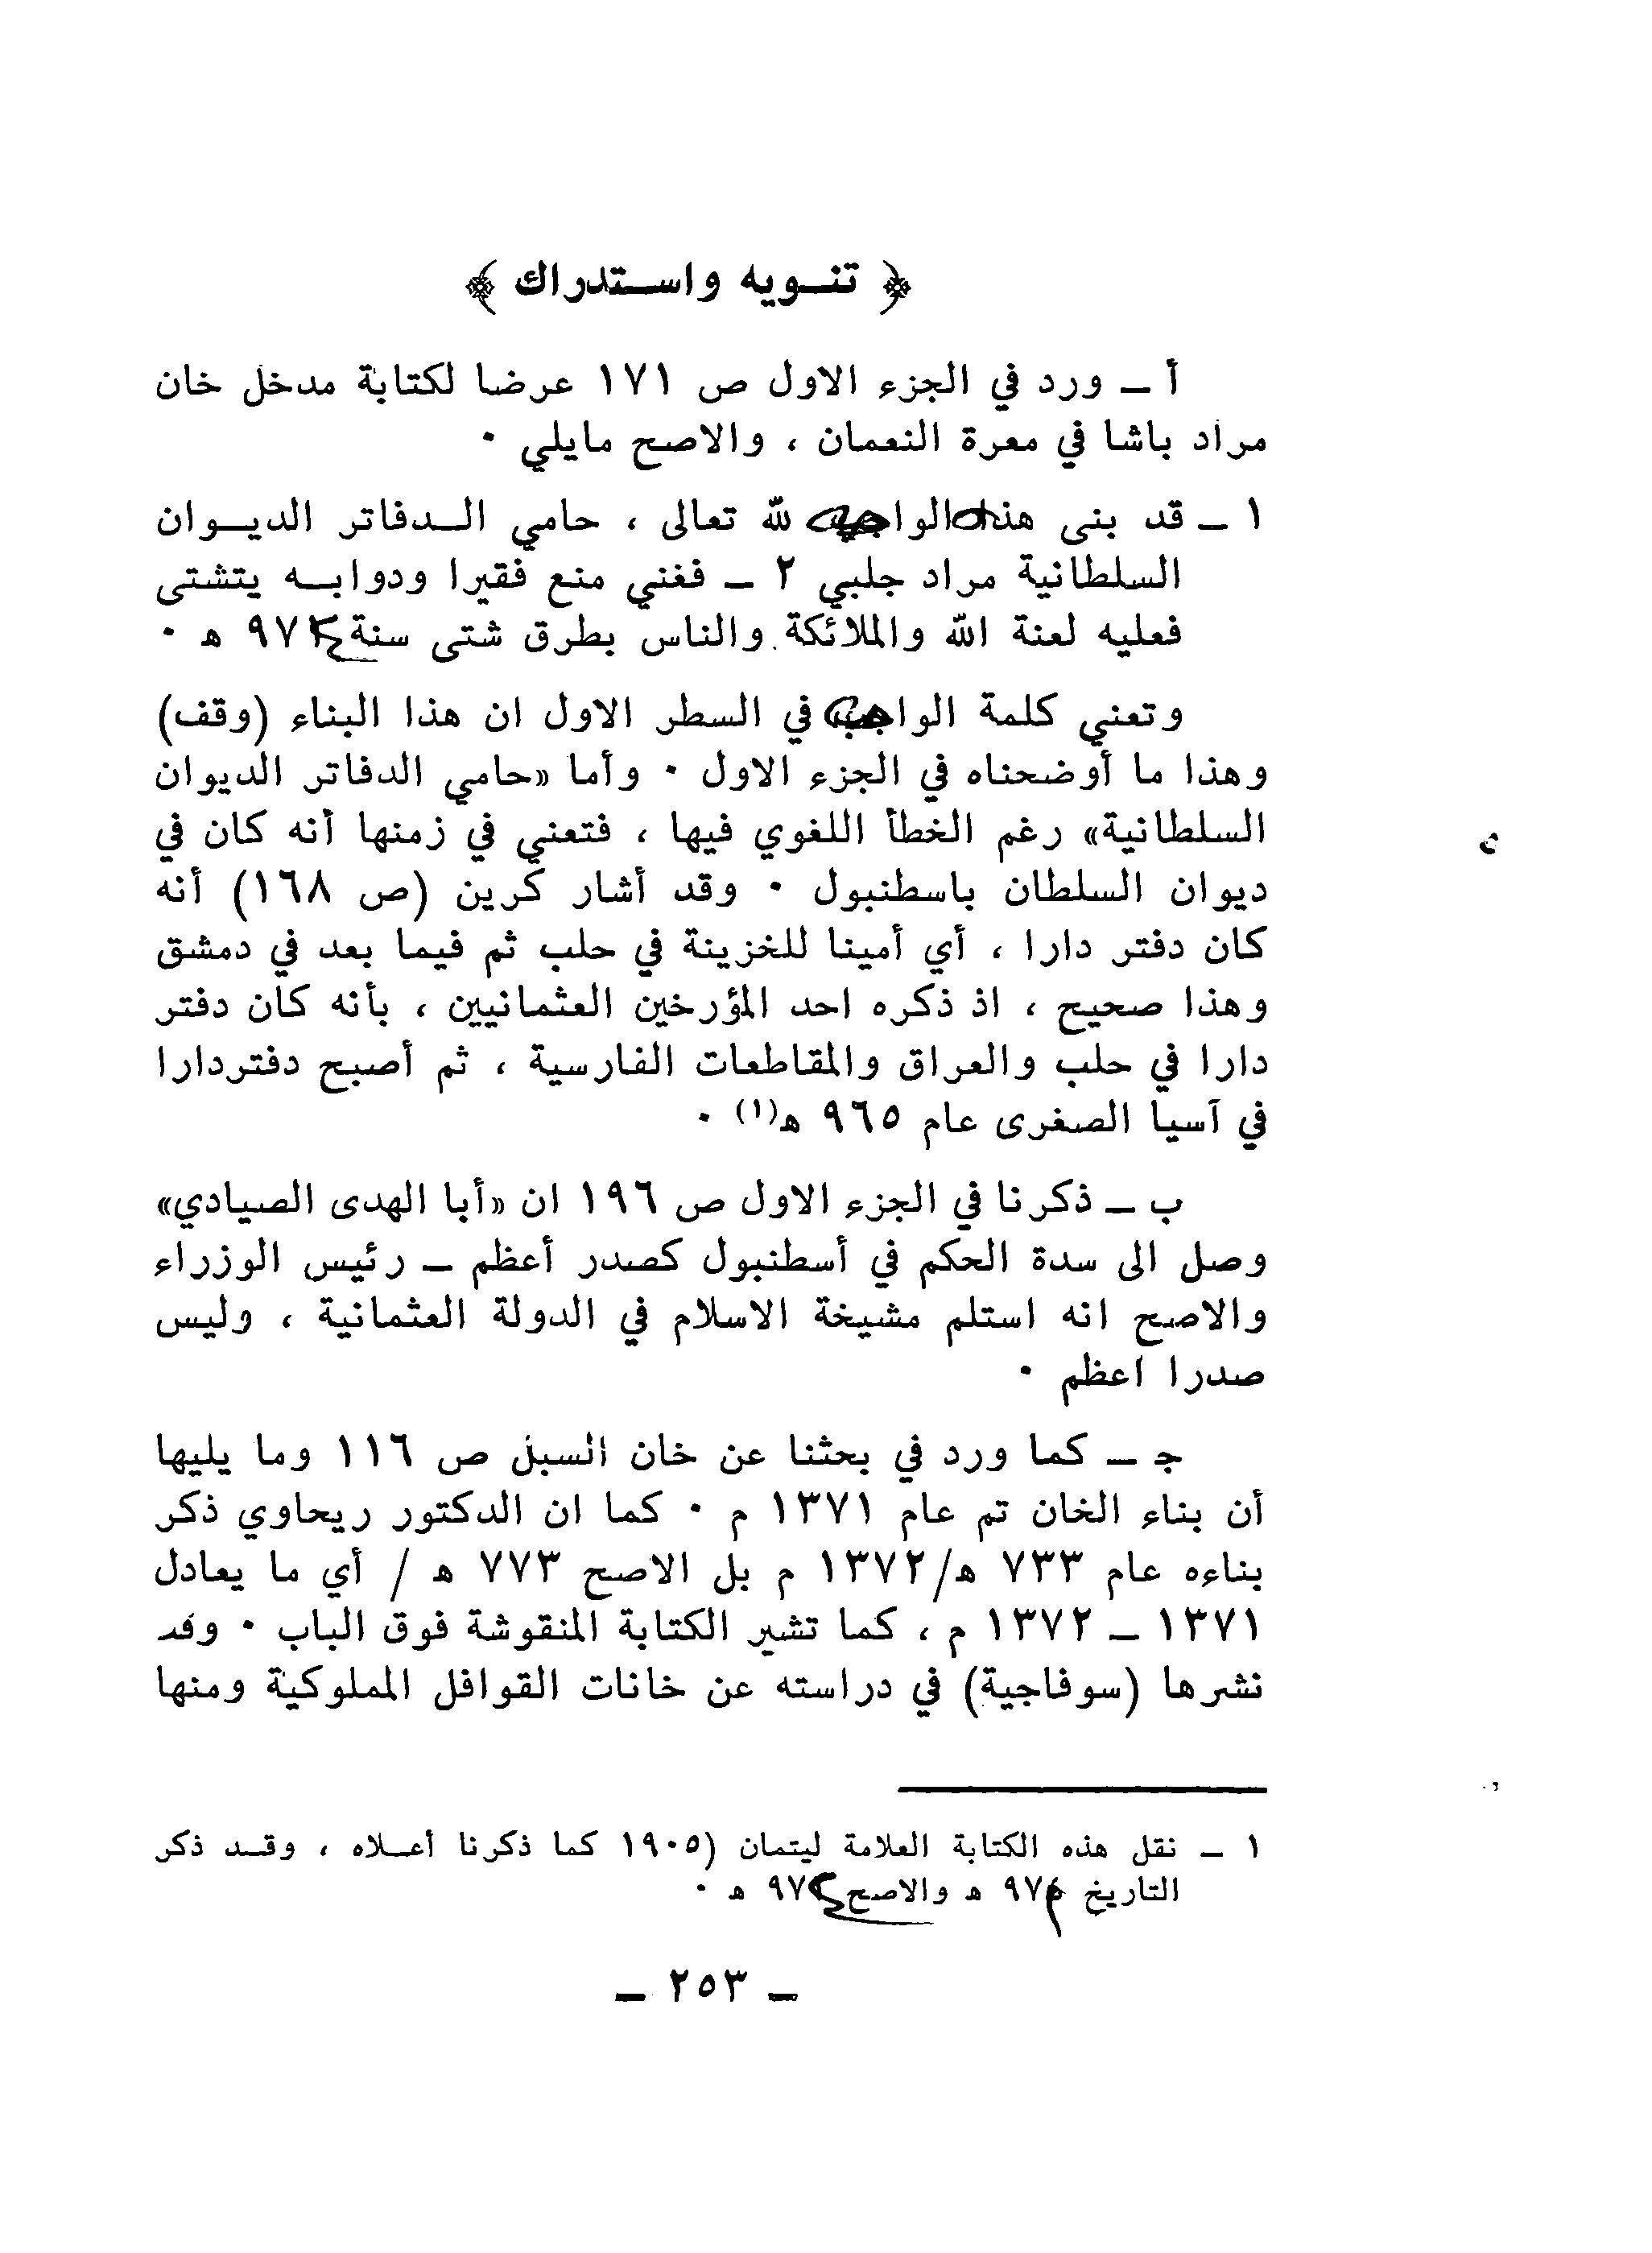 ﴿ تنـويه واسـتدراك ﴾
أ ـ ورد في الجزء الاول ص ١٧١ عرضا لكتابة مدخل خان
مراد باشا في معرة النعمان ، والاصح مايلي ٠
١ ـ قد بنى لله تعالى ، حامي الـدفاتر الديـوان
السلطانية مراد جلبي ٢ ـ فغني منع فقيرا ودوابـه يتشتى
فعليه لعنة الله والملائكة والناس بطرق شتى سنة ه ٠
وتعني كلمة في السطر الاول ان هذا البناء (وقف)
وهذا ما أوضحناه في الجزء الاول ٠ وأما «حامي الدفاتر الديوان
السلطانية» رغم الخطأ اللغوي فيها ، فتعني في زمنها أنه كان في
ديوان السلطان باسطنبول ٠ وقد أشار كرين (ص ١٦٨) أنه
كان دفتر دارا ، أي أمينا للخزينة في حلب ثم فيما بعد في دمشق
وهذا صحيح ، اذ ذكره احد المؤرخين العثمانيين ، بأنه كان دفتر
دارا في حلب والعراق والمقاطعات الفارسية ، ثم أصبح دفتردارا
في آسيا الصغرى عام ٩٦٥ ه(١) ٠
ب ـ ذكرنا في الجزء الاول ص ١٩٦ ان «أبا الهدى الصيادي»
وصل الى سدة الحكم في أسطنبول كصدر أعظم ـ رئيس الوزراء
والاصح انه استلم مشيخة الاسلام في الدولة العثمانية ، وليس
صدرا اعظم ٠
جـ ـ كما ورد في بحثنا عن خان السبل ص ١١٦ وما يليها
أن بناء الخان تم عام ١٣٧١ م ٠ كما ان الدكتور ريحاوي ذكر
بناءه عام ٧٣٣ ه/١٣٧٢ م بل الاصح ٧٧٣ ه / أي ما يعادل
١٣٧١ ـ ١٣٧٢ م ، كما تشير الكتابة المنقوشة فوق الباب ٠ وقد
نشرها (سوفاجية) في دراسته عن خانات القوافل المملوكية ومنها
١ ـ نقل هذه الكتابة العلامة ليتمان (١٩٠٥ كما ذكرنا أعـلاه ، وقـد ذكر
التاريخ ه والاصح ه ٠
ـ ٢٥٣ ـ